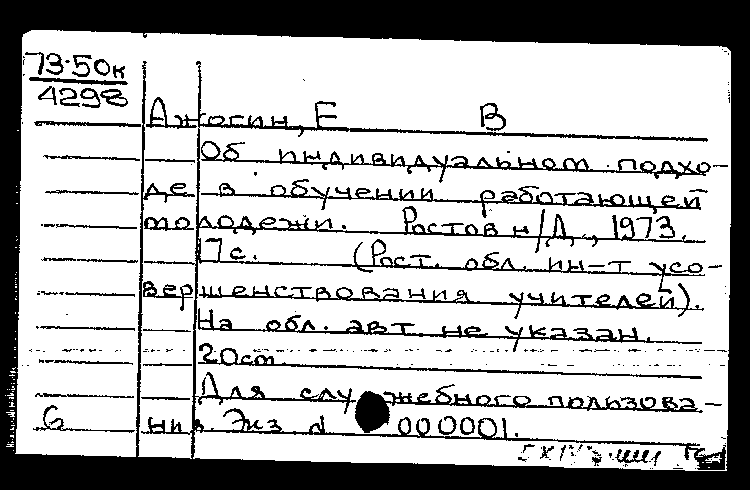 73-50к
4298
Ажогин, Е В
Об индивидуальном подхо-
де в обучении работающей
молодежи. Ростов н/Д, 1973.
17с. (Рост. обл. ин-т усо-
вершенствования учителей).
На обл. авт. не указан.
20см.
Для служебного пользова-
ния. Экз. № 000001.
б